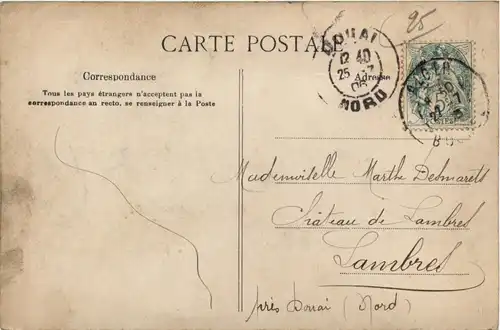 95
CARTE POSTALE
DOUAI
12 40
25 -7
06
NORD
Correspondance
Tous les pays étrangers n'acceptent pas la
correspondance au recto, se renseigner à la Poste
Adresse
Mademoiselle Marthe Desmarets
Château de Lambres
Lambres
près Douai (Nord)